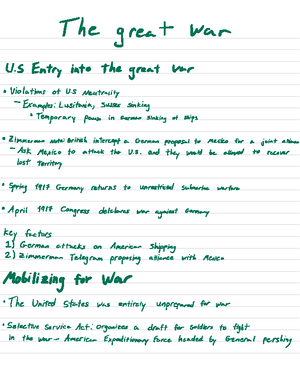 The great War
U.S Entry into the great War
• Violations of U.S Neutrality
– Examples: Lusitania, Sussex sinking
• Temporary pause in German sinking of ships
• Zimmerman Note: British intercept a German proposal to Mexico for a joint
– Ask Mexico to attack the U.S. and they would be allowed to recover
lost territory
• Spring 1917 Germany returns to unrestricted submarine warfare
• April 1917 Congress declares war against Germany
Key factors
1) German attacks on American Shipping
2) Zimmerman Telegram proposing alliance with Mexico
Mobilizing for War
• The United States was entirely unprepared for war
• Selective Service Act: organizes a draft for soldiers to fight
in the war – American Expeditionary Force headed by General pershing